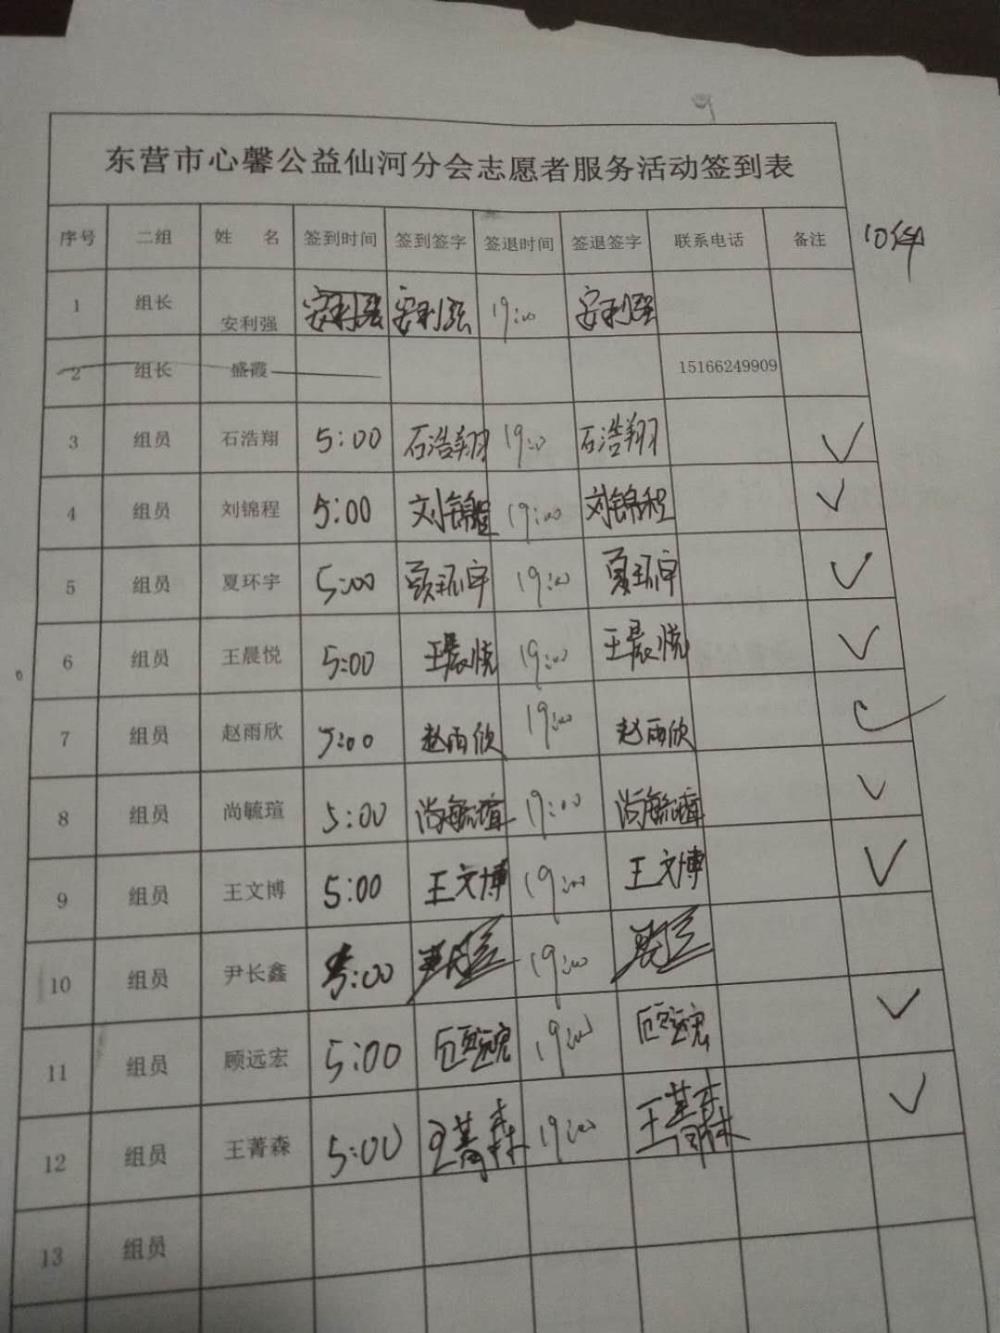 东营市心馨公益仙河分会志愿者服务活动签到表
序号 二组 姓 名 签到时间 签到签字 签退时间 签退签字 联系电话 备注 10件
1 组长 安利强 安利强 安利强 19:00 安利强
2 组长 盛霞 15166249909
3 组员 石浩翔 5:00 石浩翔 19:00 石浩翔 ✓
4 组员 刘锦程 5:00 刘锦程 19:00 刘锦程 ✓
5 组员 夏环宇 5:00 夏环宇 19:00 夏环宇 ✓
6 组员 王晨悦 5:00 王晨悦 19:00 王晨悦 ✓
7 组员 赵雨欣 5:00 赵雨欣 19:00 赵雨欣 ✓
8 组员 尚毓瑄 5:00 尚毓瑄 19:00 尚毓瑄 ✓
9 组员 王文博 5:00 王文博 19:00 王文博 ✓
10 组员 尹长鑫 5:00 19:00
11 组员 顾远宏 5:00 19:00 ✓
12 组员 王菁森 5:00 王菁森 19:00 王菁森 ✓
13 组员